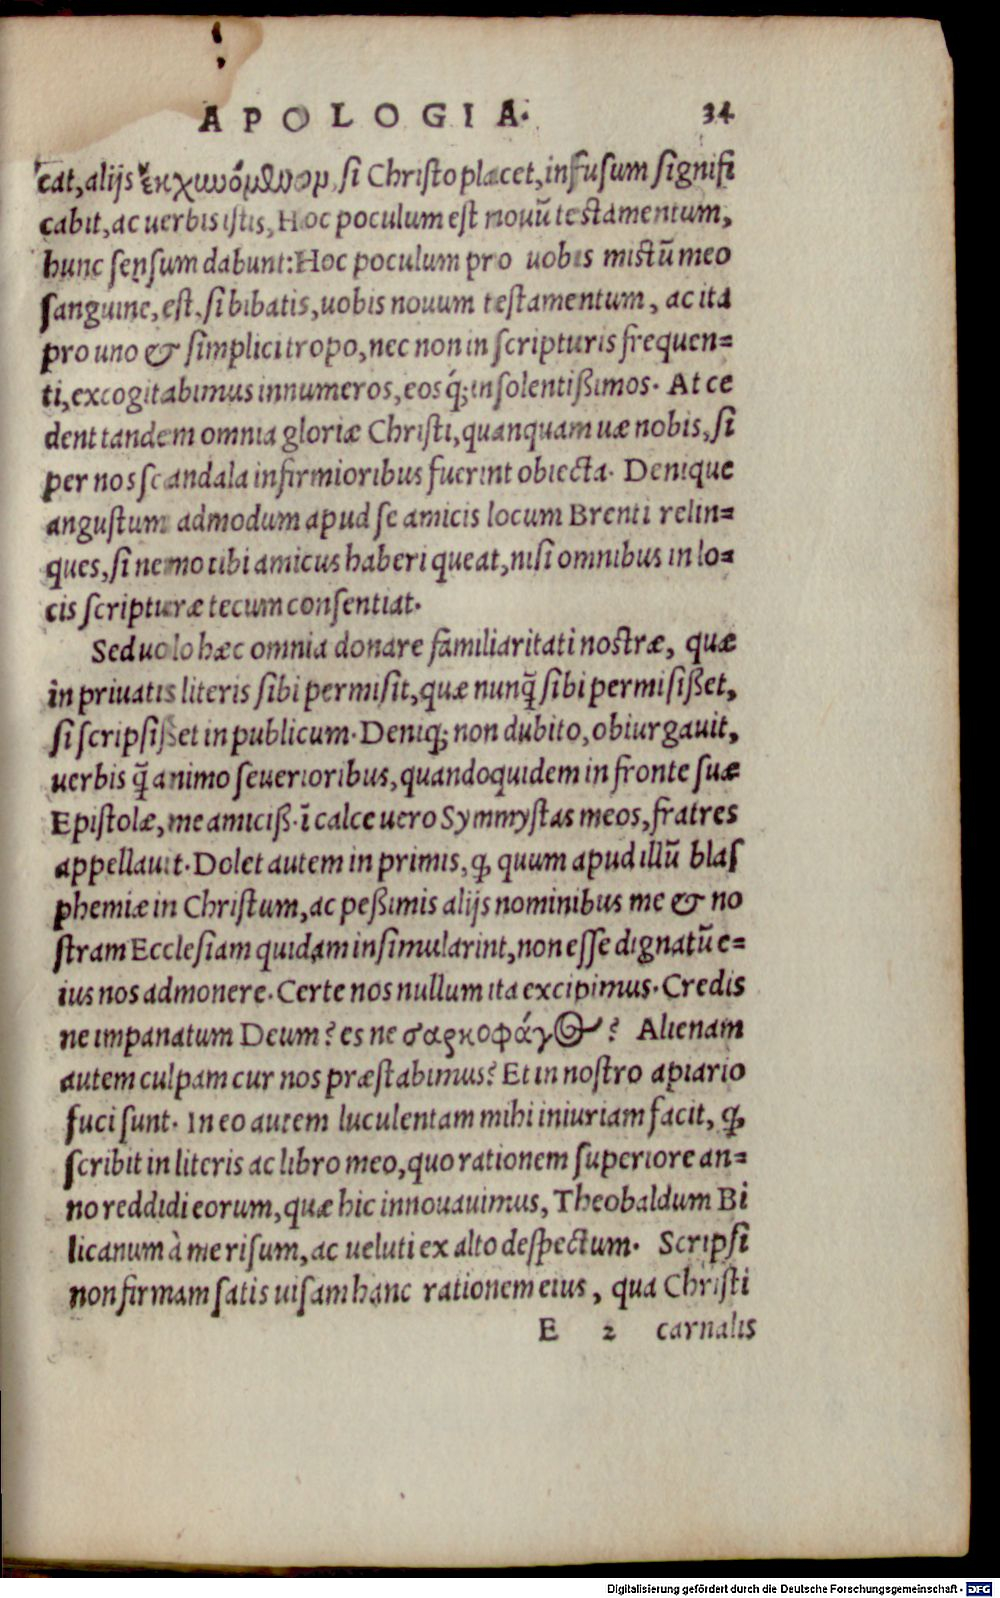 APOLOGIA. 34
cat, alijs ἐκχυνόμενον, si Christo placet, infusum signifi
cabit, ac uerbis istis, Hoc poculum est nouũ testamentum,
hunc sensum dabunt: Hoc poculum pro uobis mistũ meo
sanguine, est, si bibatis, uobis nouum testamentum, ac ita
pro uno & simplici tropo, nec non in scripturis frequen=
ti, excogitabimus innumeros, eosq́; insolentißimos. At ce
dent tandem omnia gloriæ Christi, quanquam uæ nobis, si
per nos scandala infirmioribus fuerint obiecta. Denique
angustum admodum apud se amicis locum Brenti relin=
ques, si nemo tibi amicus haberi queat, nisi omnibus in lo=
cis scripturæ tecum consentiat.
Sed uolo hæc omnia donare familiaritati nostræ, quæ
in priuatis literis sibi permisit, quæ nunq̃ sibi permisißet,
si scripsißet in publicum. Deniq; non dubito, obiurgauit,
uerbis q̃ animo seuerioribus, quandoquidem in fronte suæ
Epistolæ, me amiciß. ĩ calce uero Symmystas meos, fratres
appellauit. Dolet autem in primis, q, quum apud illũ blas
phemiæ in Christum, ac peßimis alijs nominibus me & no
stram Ecclesiam quidam insimularint, non esse dignatũ e=
ius nos admonere. Certe nos nullum ita excipimus. Credis
ne impanatum Deum? es ne σαρκοφάγος? Alienam
autem culpam cur nos præstabimus? Et in nostro apiario
fuci sunt. In eo autem luculentam mihi iniuriam facit, q,
scribit in literis ac libro meo, quo rationem superiore an=
no reddidi eorum, quæ hic innouauimus, Theobaldum Bi
licanum à me risum, ac ueluti ex alto despectum. Scripsi
non firmam satis uisam hanc rationem eius, qua Christi
E 2 carnalis
Digitalisierung gefördert durch die Deutsche Forschungsgemeinschaft - DFG